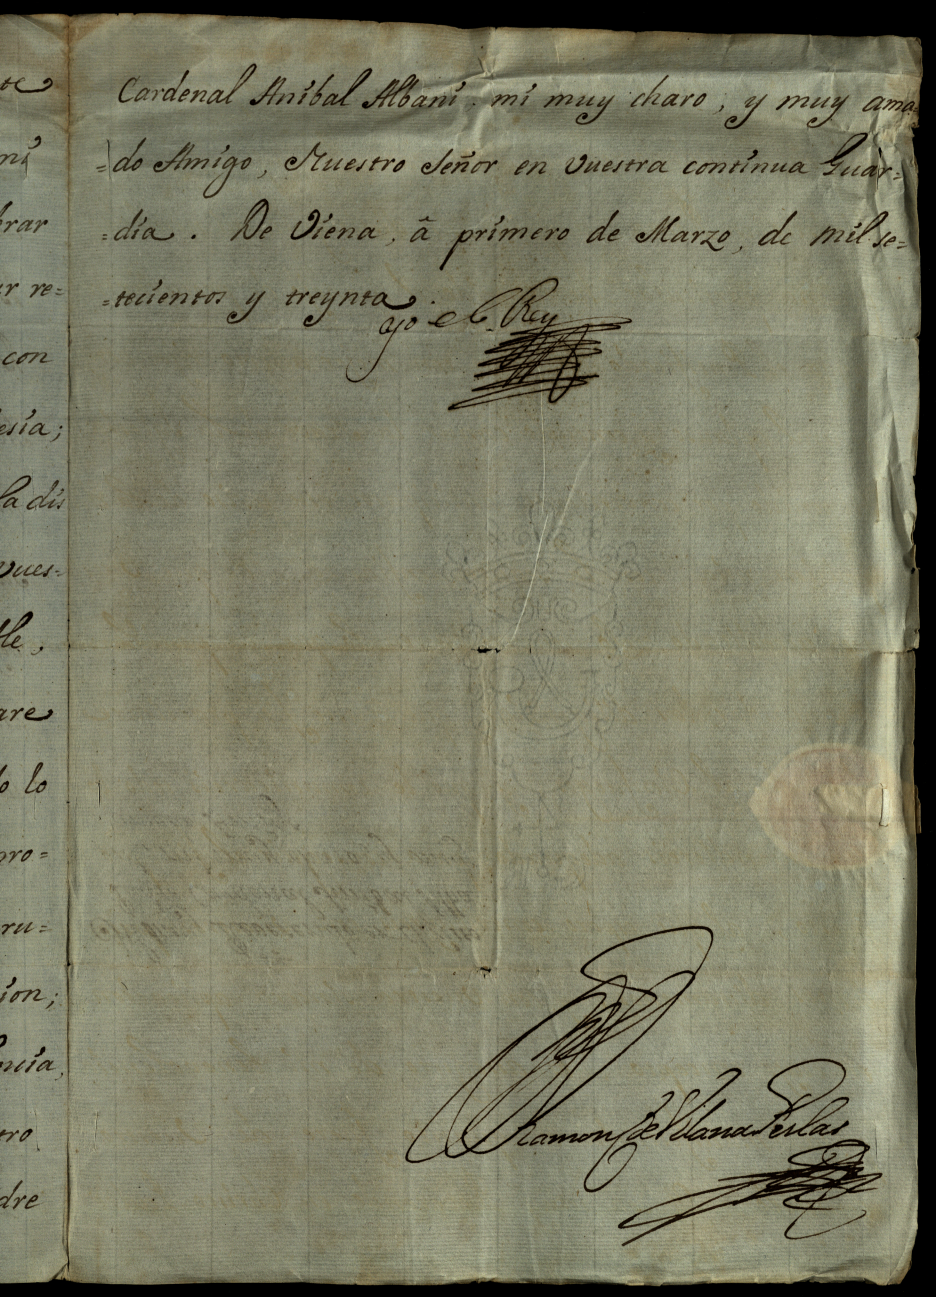 te
ni
brar
ar re=
con
esia;
la dis
vues=
lle,
are
do lo
pro=
ru=
ion;
ncia,
tro
dre
Cardenal Anibal Albani. mi muy charo, y muy ama
=do Amigo, Nuestro Señor en Vuestra continua Guar=
=dia. De Viena, â primero de Marzo, de mil se=
=tecientos y treynta.
yo el Rey
Ramon de Vilana Perlas